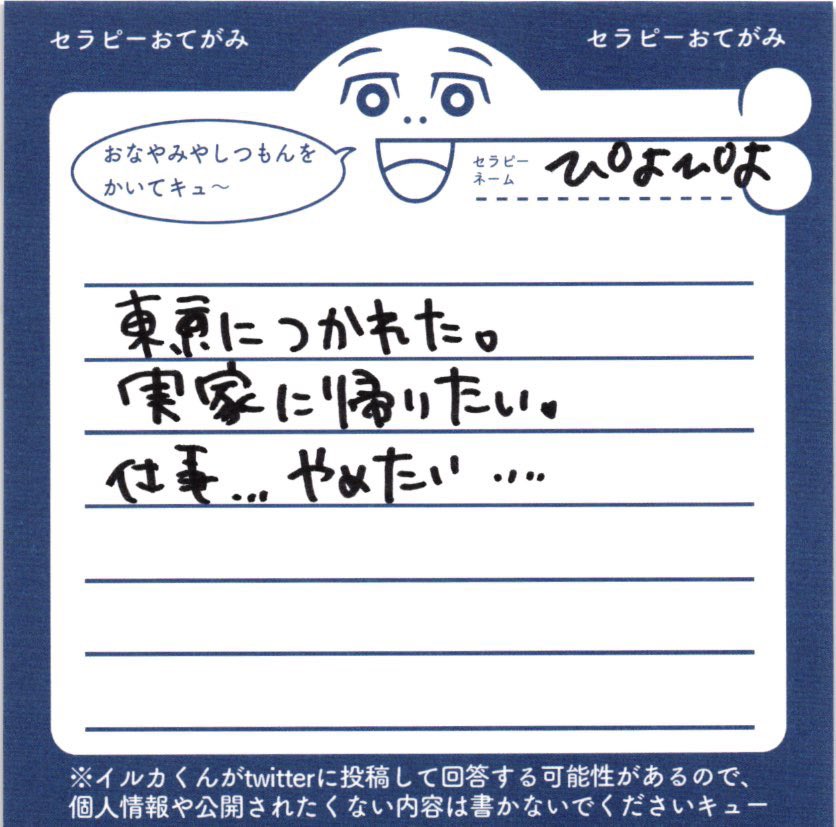 セラピーおてがみ
セラピーおてがみ
おなやみやしつもんを
かいてキュ〜
セラピー
ネーム
ぴよぴよ
東京につかれた。
実家に帰りたい。
仕事...やめたい....
※イルカくんがtwitterに投稿して回答する可能性があるので、
個人情報や公開されたくない内容は書かないでくださいキュー